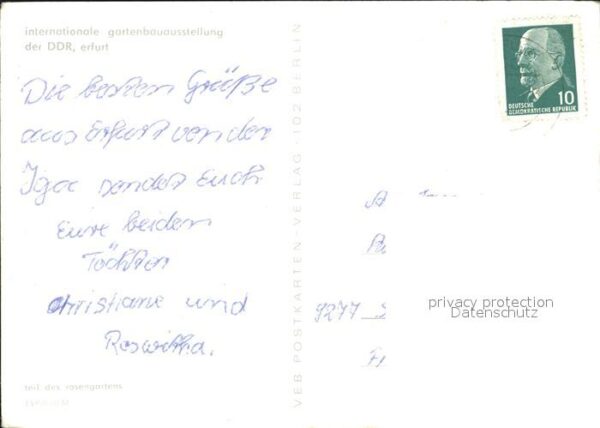 internationale gartenbauausstellung
der DDR, erfurt
Die besten Grüße
aus Erfurt von der
Iga sendet Euch
Eure beiden
Töchter
Christiane und
Roswitha.
teil des rosengartens
VEB POSTKARTEN-VERLAG · 102 BERLIN
DEUTSCHE
DEMOKRATISCHE REPUBLIK
10
9277
privacy protection
Datenschutz